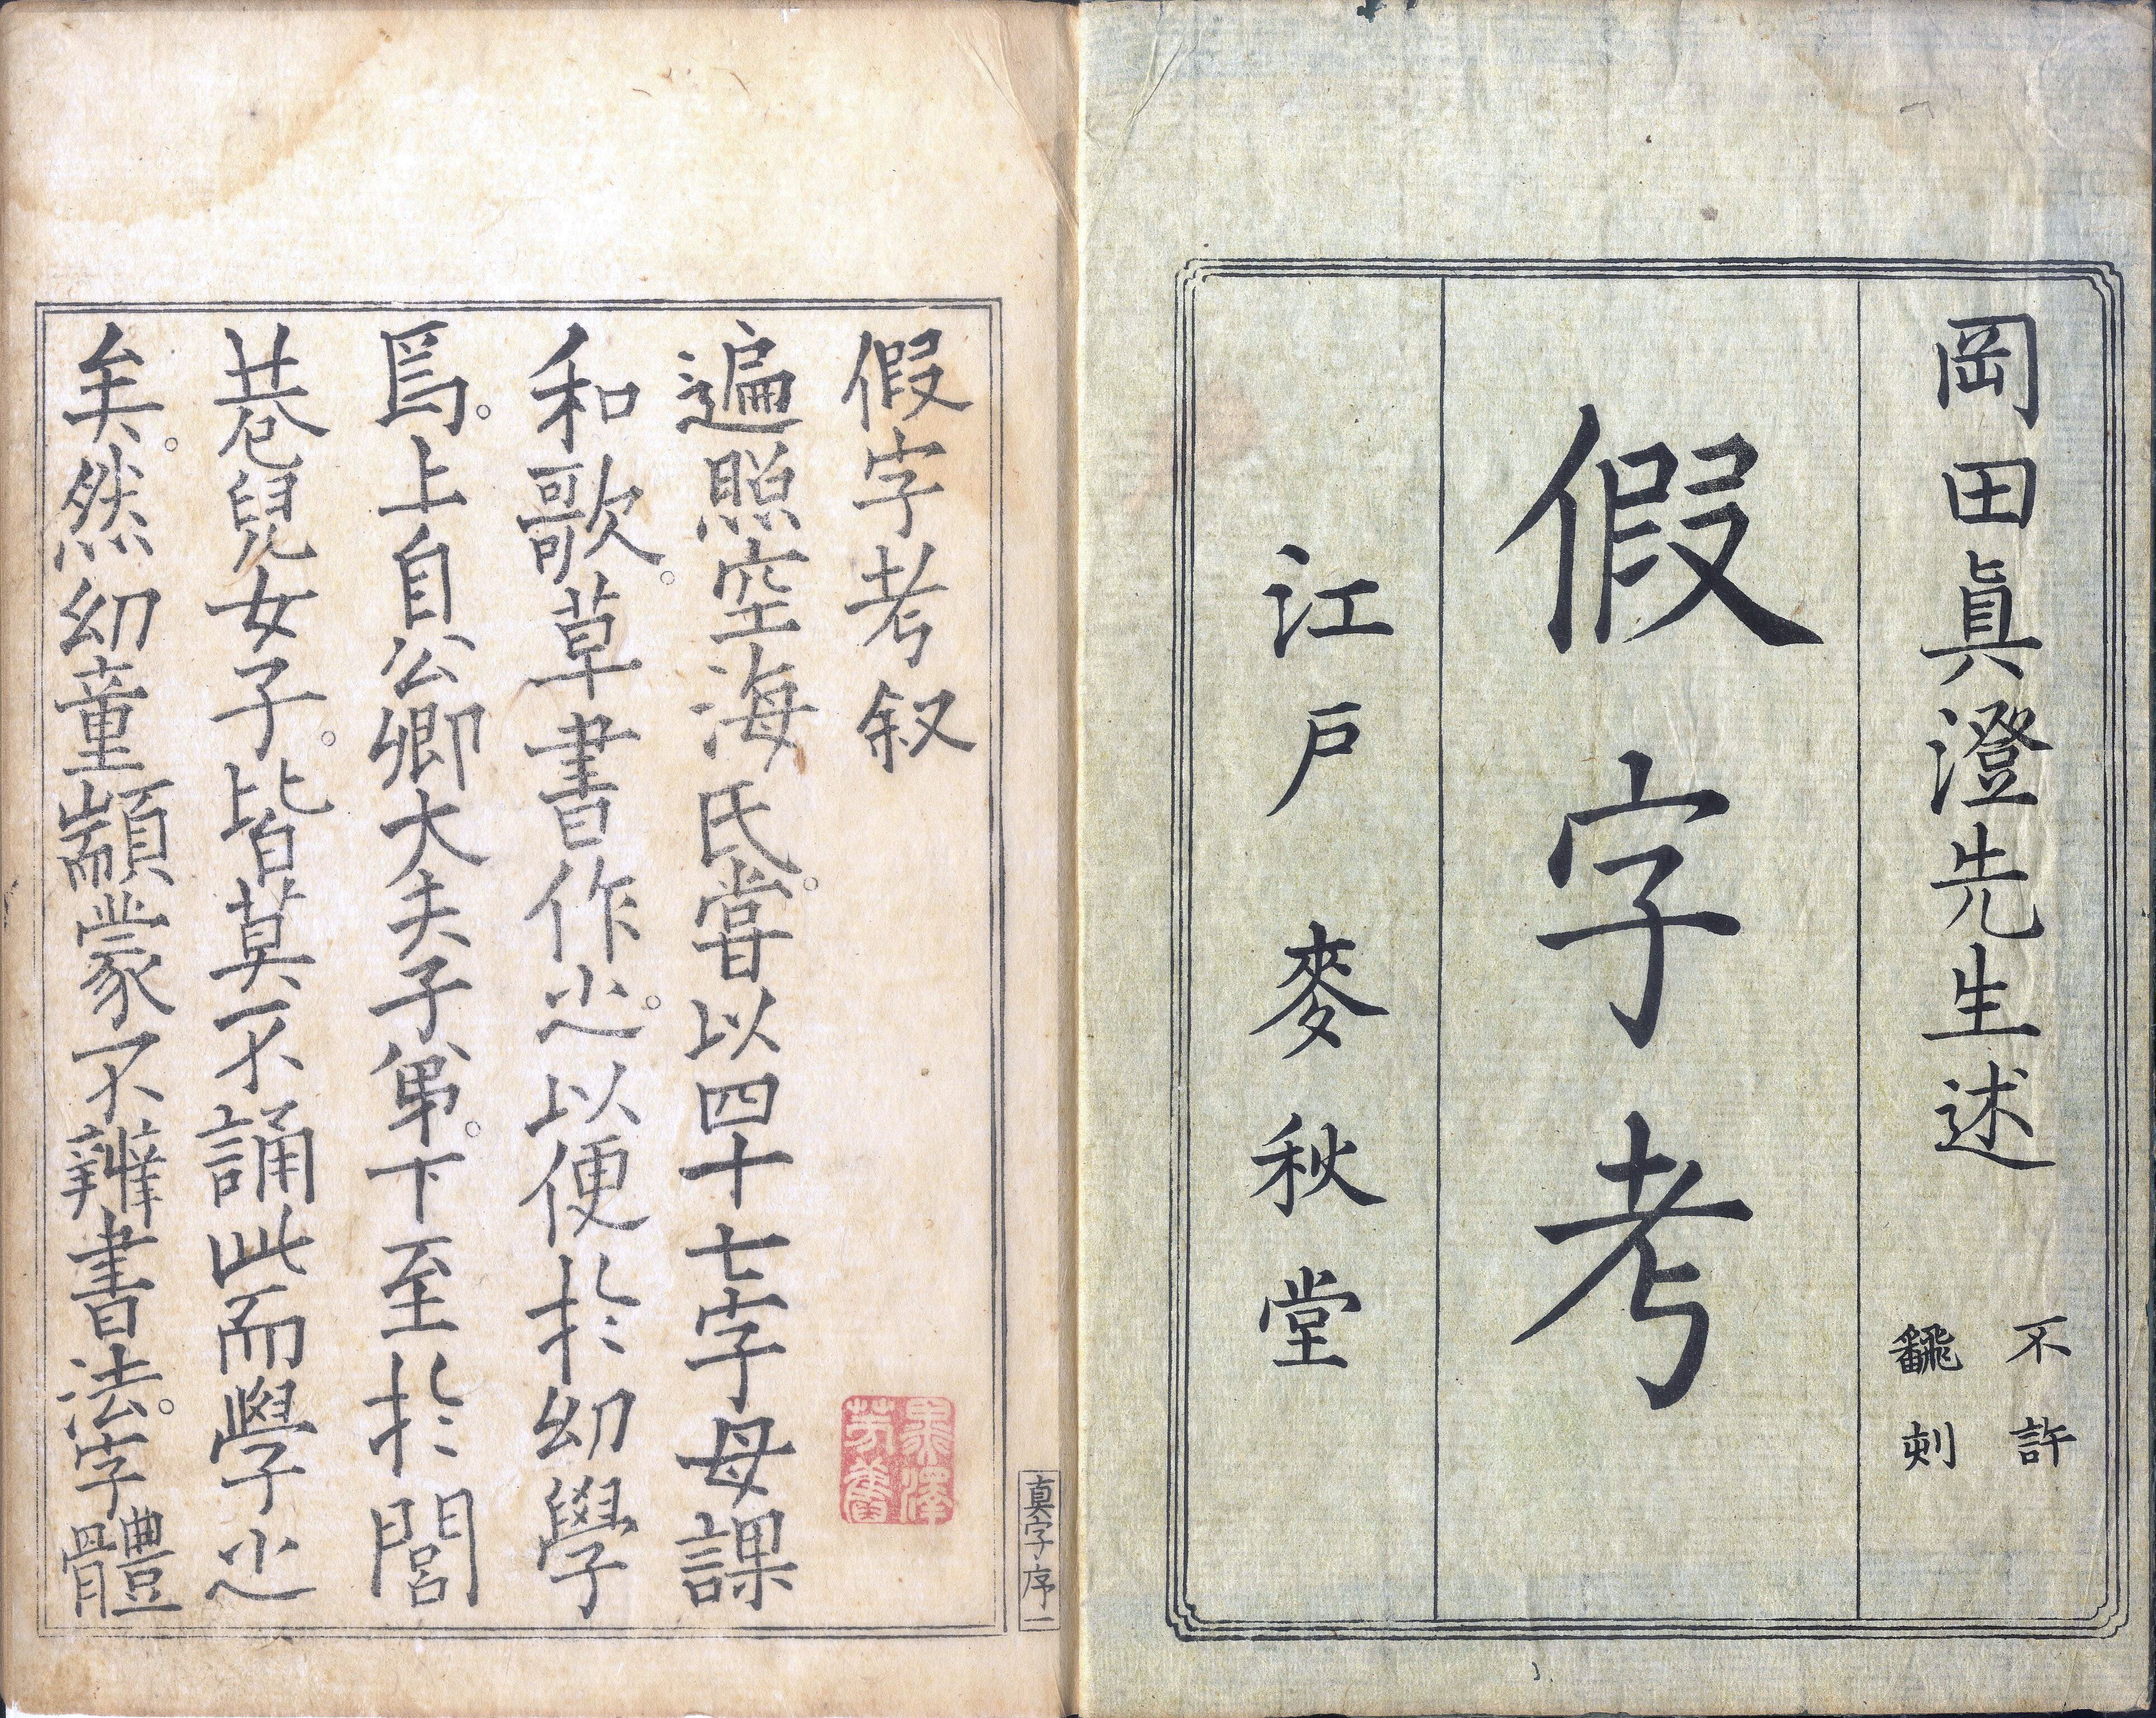 岡田眞澄先生述
不許
飜刻
假字考
江戸 麥秋堂
假字考叙
遍照空海氏。嘗以四十七字母課
和歌。草書作之。以便於幼學
焉。上自公卿大夫子弟。下至於閭
巷兒女子。皆莫不誦此而學之
矣。然幼童顓蒙不辨書法。字體
真字序一